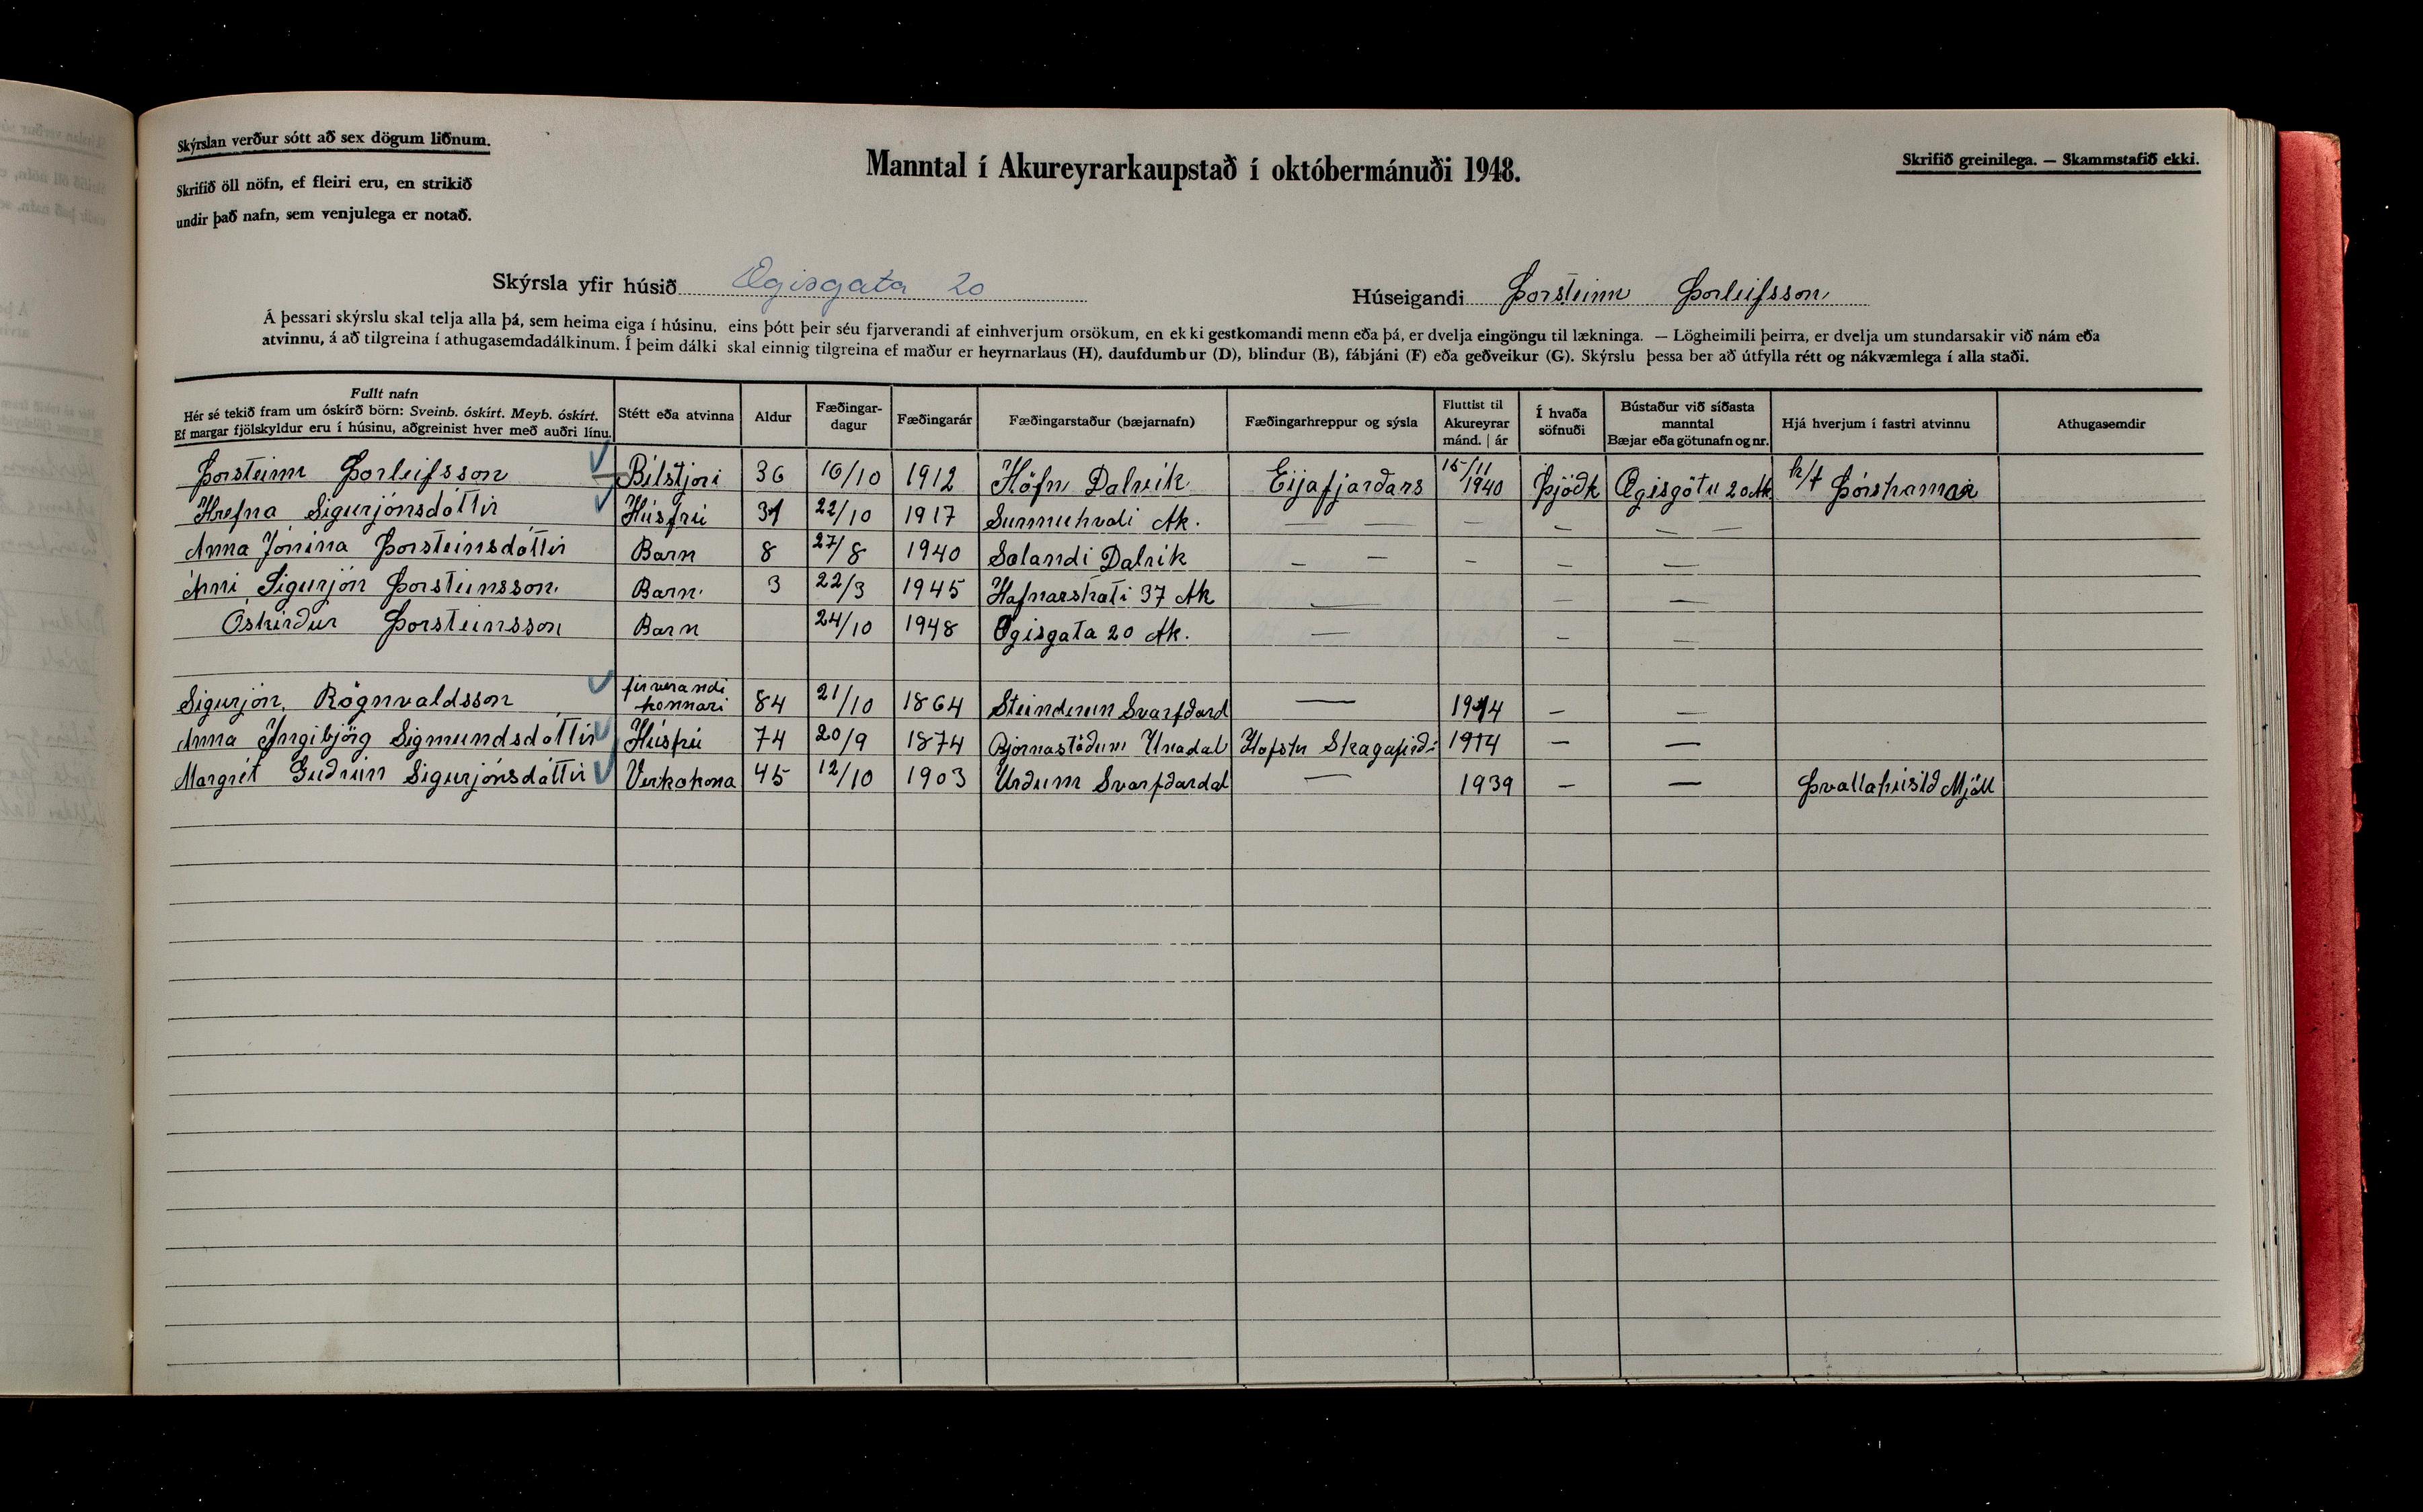 Skýrslan verður sótt að sex dögum liðnum.
Skrifið öll nöfn, ef fleiri eru, en strikið
undir það nafn, sem venjulega er notað.
Manntal í Akureyrarkaupstað í októbermánuði 1948.
Skrifið greinilega. — Skammstafið ekki.
Skýrsla yfir húsið Ægisgata 20
Húseigandi Þorsteinn Þorleifsson
Á þessari skýrslu skal telja alla þá, sem heima eiga í húsinu, eins þótt þeir séu fjarverandi af einhverjum orsökum, en ekki gestkomandi menn eða þá, er dvelja eingöngu til lækninga. — Lögheimili þeirra, er dvelja um stundarsakir við nám eða
atvinnu, á að tilgreina í athugasemdadálkinum. Í þeim dálki skal einnig tilgreina ef maður er heyrnarlaus (H), daufdumbur (D), blindur (B), fábjáni (F) eða geðveikur (G). Skýrslu þessa ber að útfylla rétt og nákvæmlega í alla staði.
Fullt nafn
Hér sé tekið fram um óskírð börn: Sveinb. óskírt. Meyb. óskírt.
Ef margar fjölskyldur eru í húsinu, aðgreinist hver með auðri línu.
Stétt eða atvinna
Aldur
Fæðingar-
dagur
Fæðingarár
Fæðingarstaður (bæjarnafn)
Fæðingarhreppur og sýsla
Fluttist til
Akureyrar
mánd. | ár
Í hvaða
söfnuði
Bústaður við síðasta
manntal
Bæjar eða götunafn og nr.
Hjá hverjum í fastri atvinnu
Athugasemdir
Þorsteinn Þorleifsson Bílstjori 36 16/10 1912 Höfn Dalvik Eijafjarðars 15/11 1940 Þjóðk Ægisgötu 20 Ak h/f Þórshamar
Hrefna Sigurjónsdóttir Húsfrú 31 22/10 1917 Sunnuhvoli Ak. — — — — — —
Anna Jónína Þorsteinsdóttir Barn 8 27/8 1940 Sólandi Dalvik — — — — —
Árni Sigurjón Þorsteinsson. Barn. 3 22/3 1945 Hafnarstrati 37 Ak — — —
Óskirður Þorsteinsson Barn 24/10 1948 Ægisgata 20 Ak. — — —
Sigurjón Rögnvaldsson firverandi 84 21/10 1864 Svarfðard — 1914 — —
Anna Ingibjörg Sigmundsdóttir Húsfrú 74 20/9 1874 Bjornastöðum Unadal Hofshr Skagafirði 1914 — —
Margrét Guðrún Sigurjónsdóttir Verkakona 45 12/10 1903 Urðum Svarfðardal — 1939 — — Þvottahúsið Mjöll